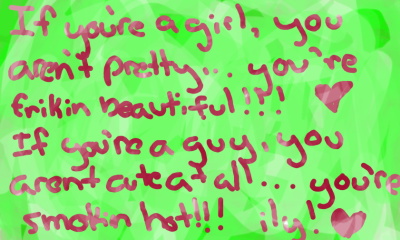 If you're a girl, you
aren't pretty... you're
frikin beautiful!!!
If you're a guy, you
arent cute at all... you're
smokin hot!!! ily!